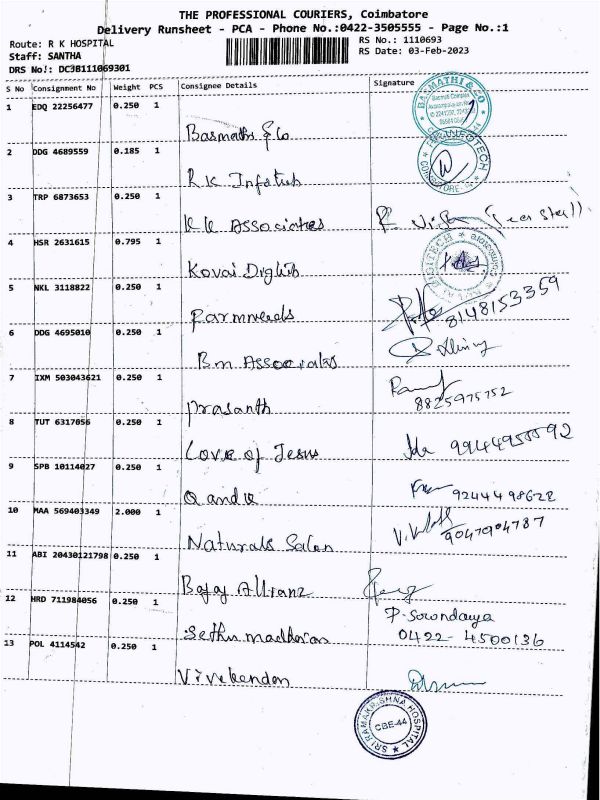 THE PROFESSIONAL COURIERS, Coimbatore
Delivery Runsheet - PCA - Phone No.:0422-3505555 - Page No.:1
Route: R K HOSPITAL
RS No.: 1110693
Staff: SANTHA
RS Date: 03-Feb-2023
DRS No!: DC3B111069301
S No Consignment No Weight PCS Consignee Details Signature
1 EDQ 22256477 0.250 1
Basmathi & Co
BASMATHI & CO
2 DDG 4689559 0.185 1
R K Infotub
3 TRP 6873653 0.250 1
K K Associates
4 HSR 2631615 0.795 1
Kovai Digkib
KOVAI DIGITECH
5 NKL 3118822 0.250 1
Farmneeds 8148153359
6 DDG 4695010 0.250 1
Bm Associates
7 IXM 503043621 0.250 1
Prasanth 8825975752
8 TUT 6317056 0.250 1
Love of Jesus
9 SPB 10114027 0.250 1
Q and U 9244498628
10 MAA 569403349 2.000 1
Naturals Salon 9047904787
11 ABI 20430121798 0.250 1
Bajaj Allianz
12 HRD 711984056 0.250 1
P. Sorondarya
Sethu madhavan 0422-4500136
13 POL 4114542 0.250 1
Vivekendan
SRI RAMAKRISHNA HOSPITAL
CBE-44